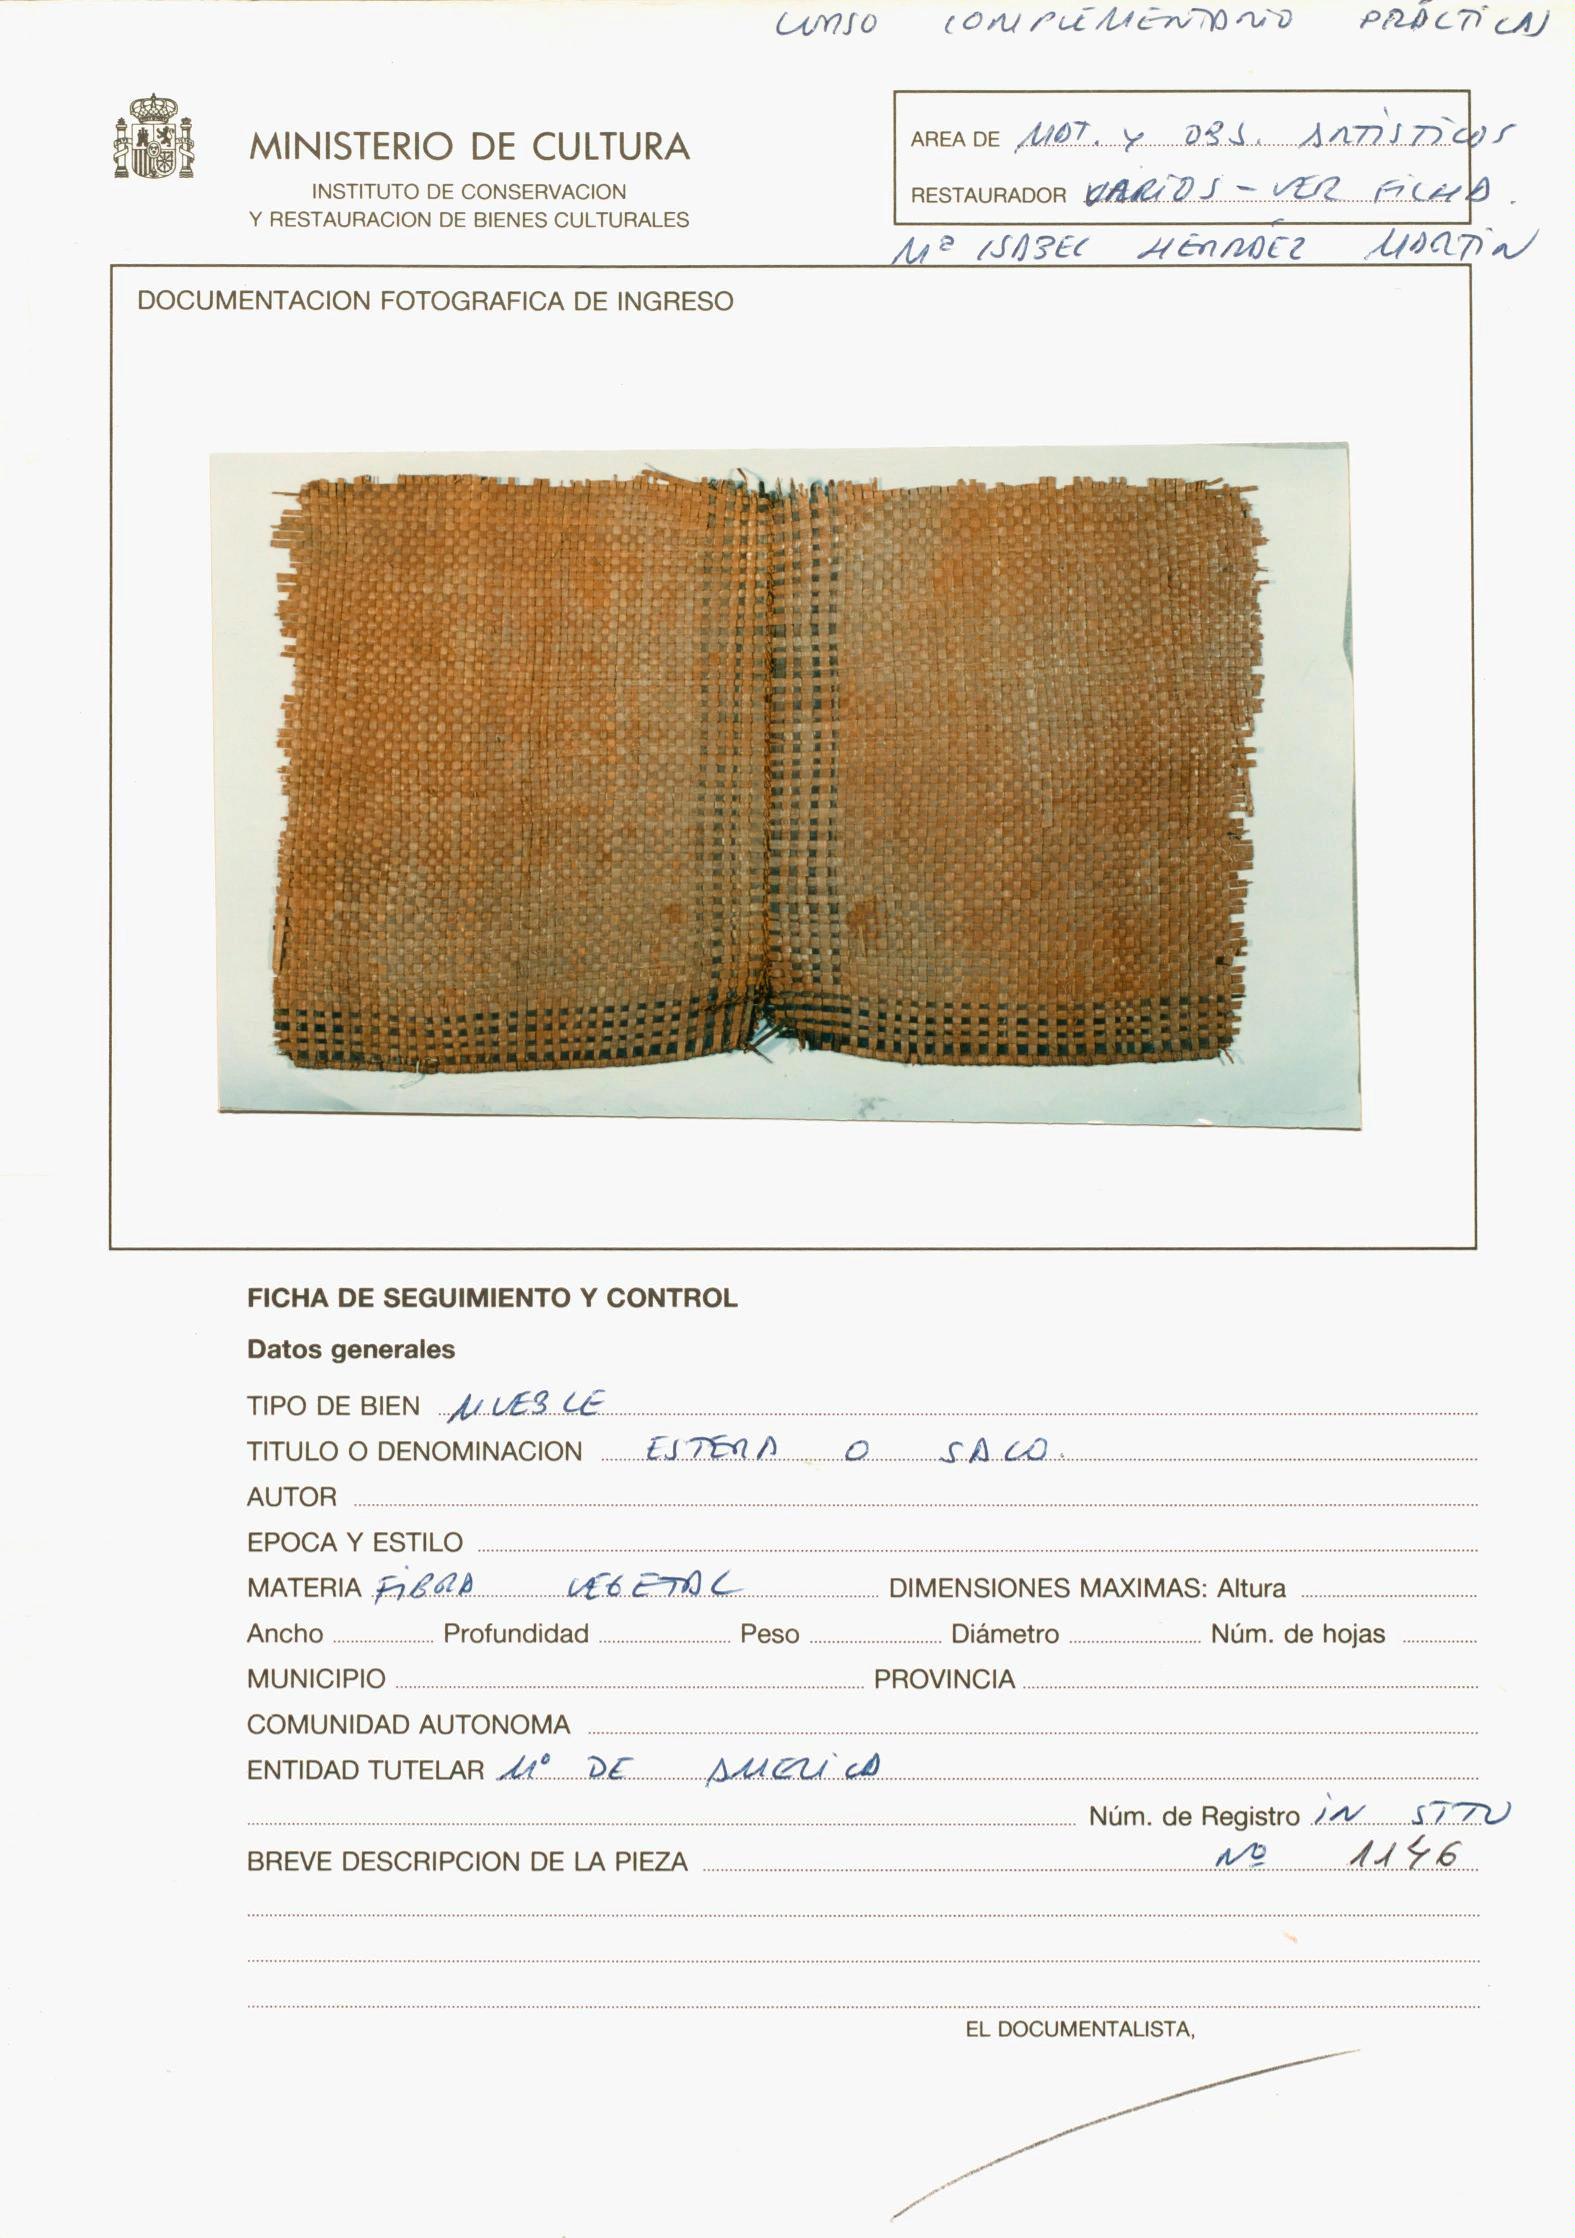 CURSO COMPLEMENTARIO PRÁCTICAS
MINISTERIO DE CULTURA
INSTITUTO DE CONSERVACION
Y RESTAURACION DE BIENES CULTURALES
AREA DE MAT. Y OBJ. ARTÍSTICOS
RESTAURADOR VARIOS - VER FICHA.
Mª ISABEL HERRÁEZ MARTÍN
DOCUMENTACION FOTOGRAFICA DE INGRESO
FICHA DE SEGUIMIENTO Y CONTROL
Datos generales
TIPO DE BIEN MUEBLE
TITULO O DENOMINACION ESTERA O SACO.
AUTOR
EPOCA Y ESTILO
MATERIA FIBRA VEGETAL DIMENSIONES MAXIMAS: Altura
Ancho Profundidad Peso Diámetro Núm. de hojas
MUNICIPIO PROVINCIA
COMUNIDAD AUTONOMA
ENTIDAD TUTELAR Mº DE AMERICA
Núm. de Registro IN STTU
BREVE DESCRIPCION DE LA PIEZA Nº 1146
EL DOCUMENTALISTA,